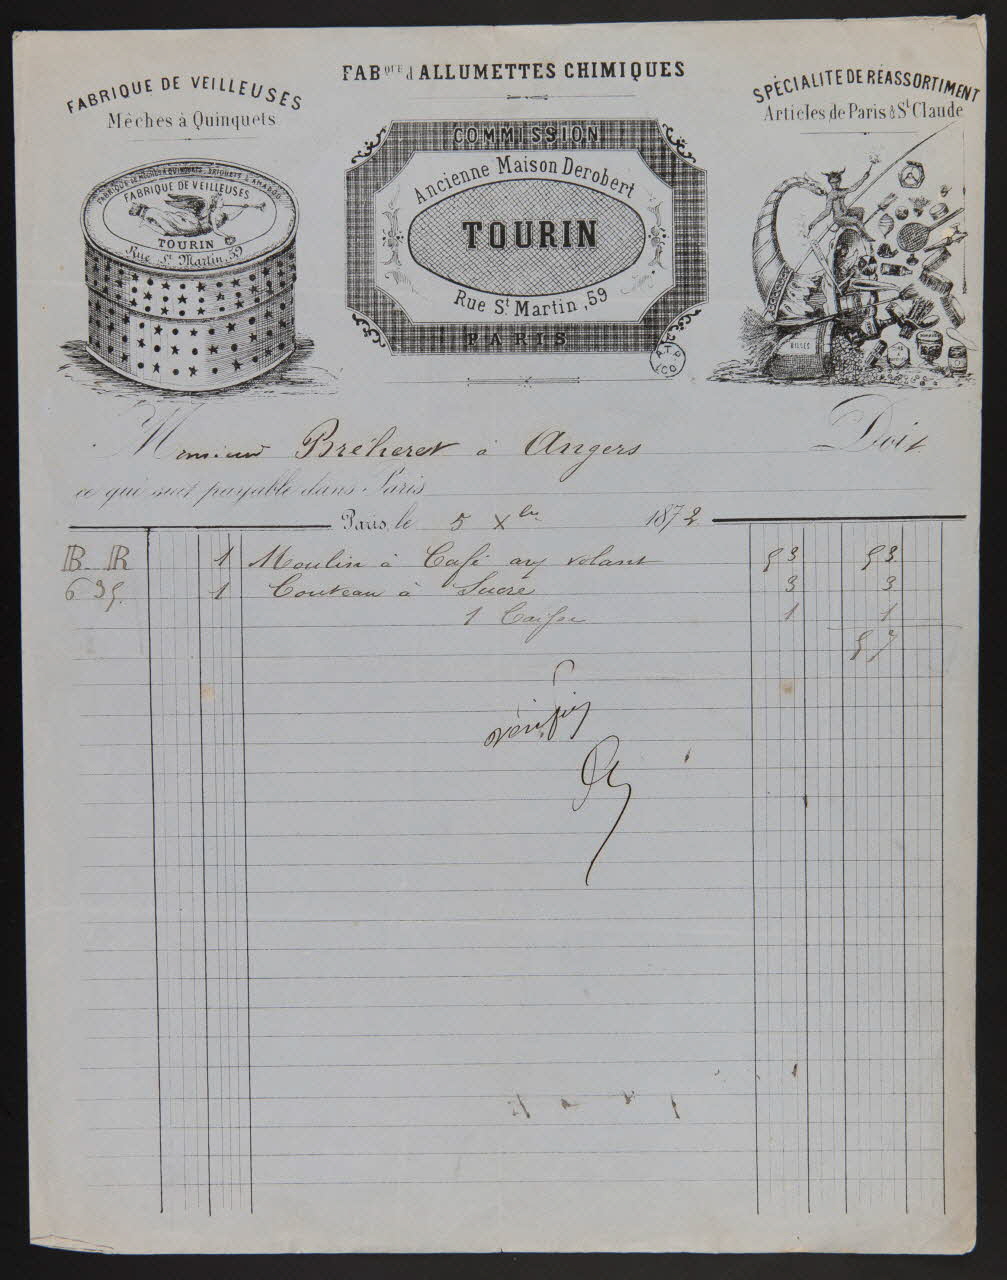 FABRIQUE DE VEILLEUSES
Mêches à Quinquets
FABQUE d'ALLUMETTES CHIMIQUES
SPÉCIALITE DE RÉASSORTIMENT
Articles de Paris & St Claude
FABRIQUE DE MÈCHES A QUINQUETS, BRIQUETS & AMADOU
FABRIQUE DE VEILLEUSES
TOURIN
Rue St Martin, 59
COMMISSION
Ancienne Maison Derobert
TOURIN
Rue St Martin, 59
PARIS
A.T.P.
BILLES
Monsieur Bréheret à Angers Doit
ce qui suit payable dans Paris
Paris, le 5 Xbre 1872
B R 1 Moulin à Café au volant 53 53
1 Couteau à Sucre 3 3
1 Caisse 1 1
57
vérifié